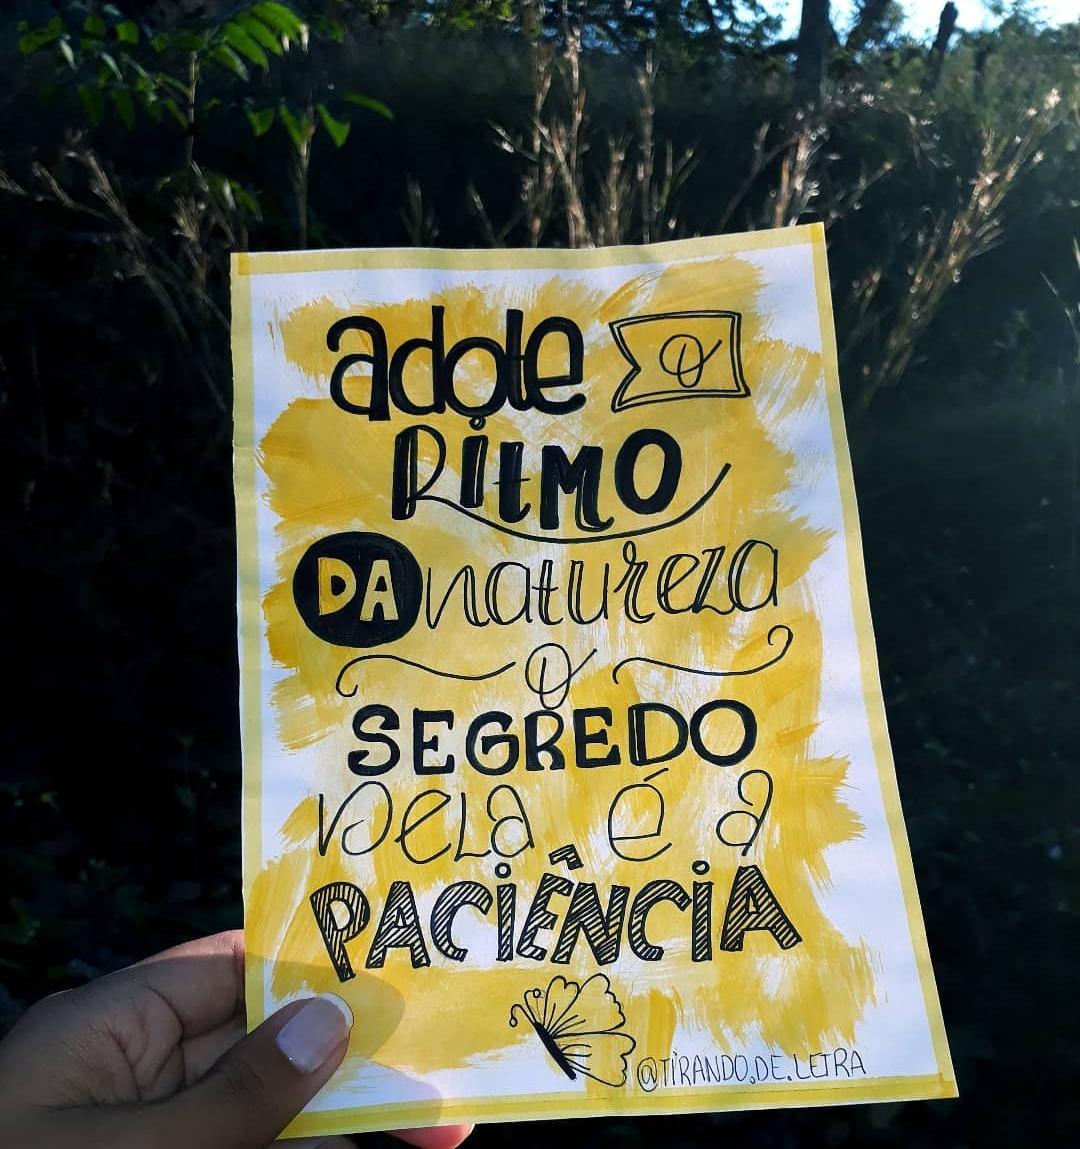 adote o
RitMO
DA natureza
o
SEGREDO
dela é a
PACiÊNCiA
@TIRANDO.DE.LETRA